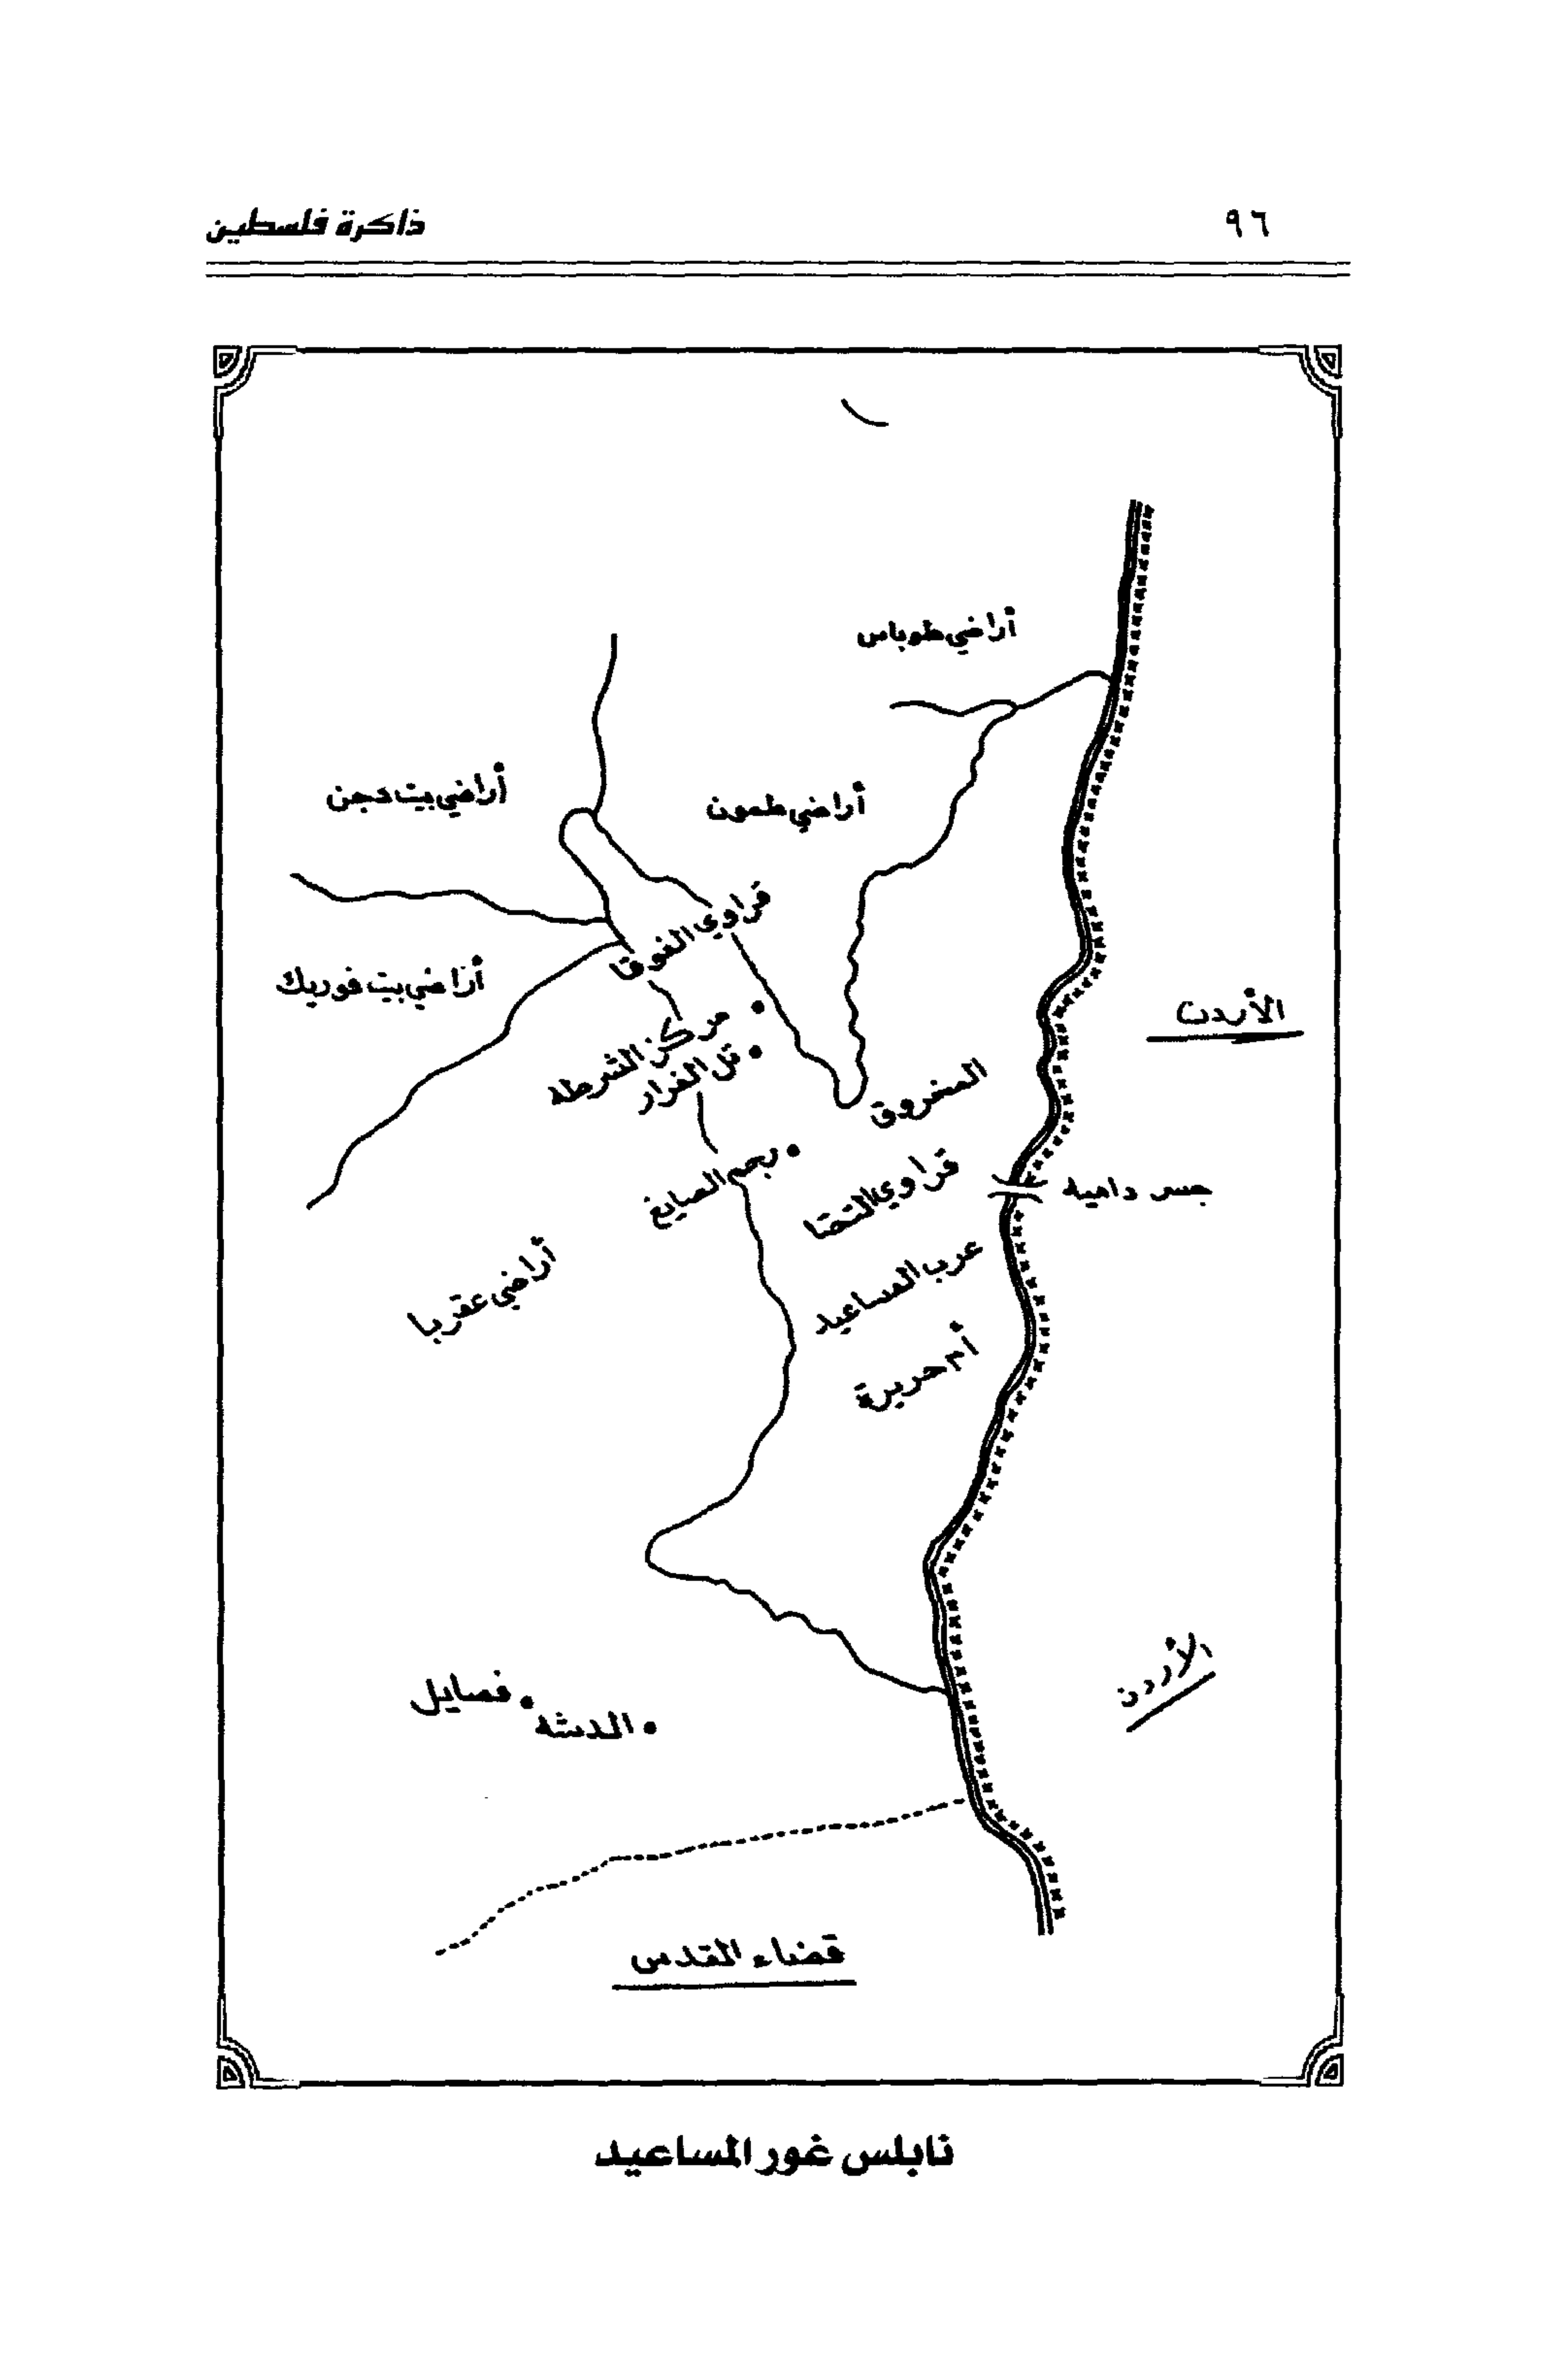 ٩٦
ذاكرة فلسطين
أراضي طوباس
أراضي بيت دجن
أراضي طمون
قراوي الفوقا
أراضي بيت فوريك
الأردن
مركز الشرطة
تل الغرار
المخروق
الصايغ
قراوي التحتا
جسر داميه
عرب المساعيد
أراضي عقربا
أم حريرة
الأردن
فصايل
الدشه
قضاء القدس
نابلس غور المساعيد